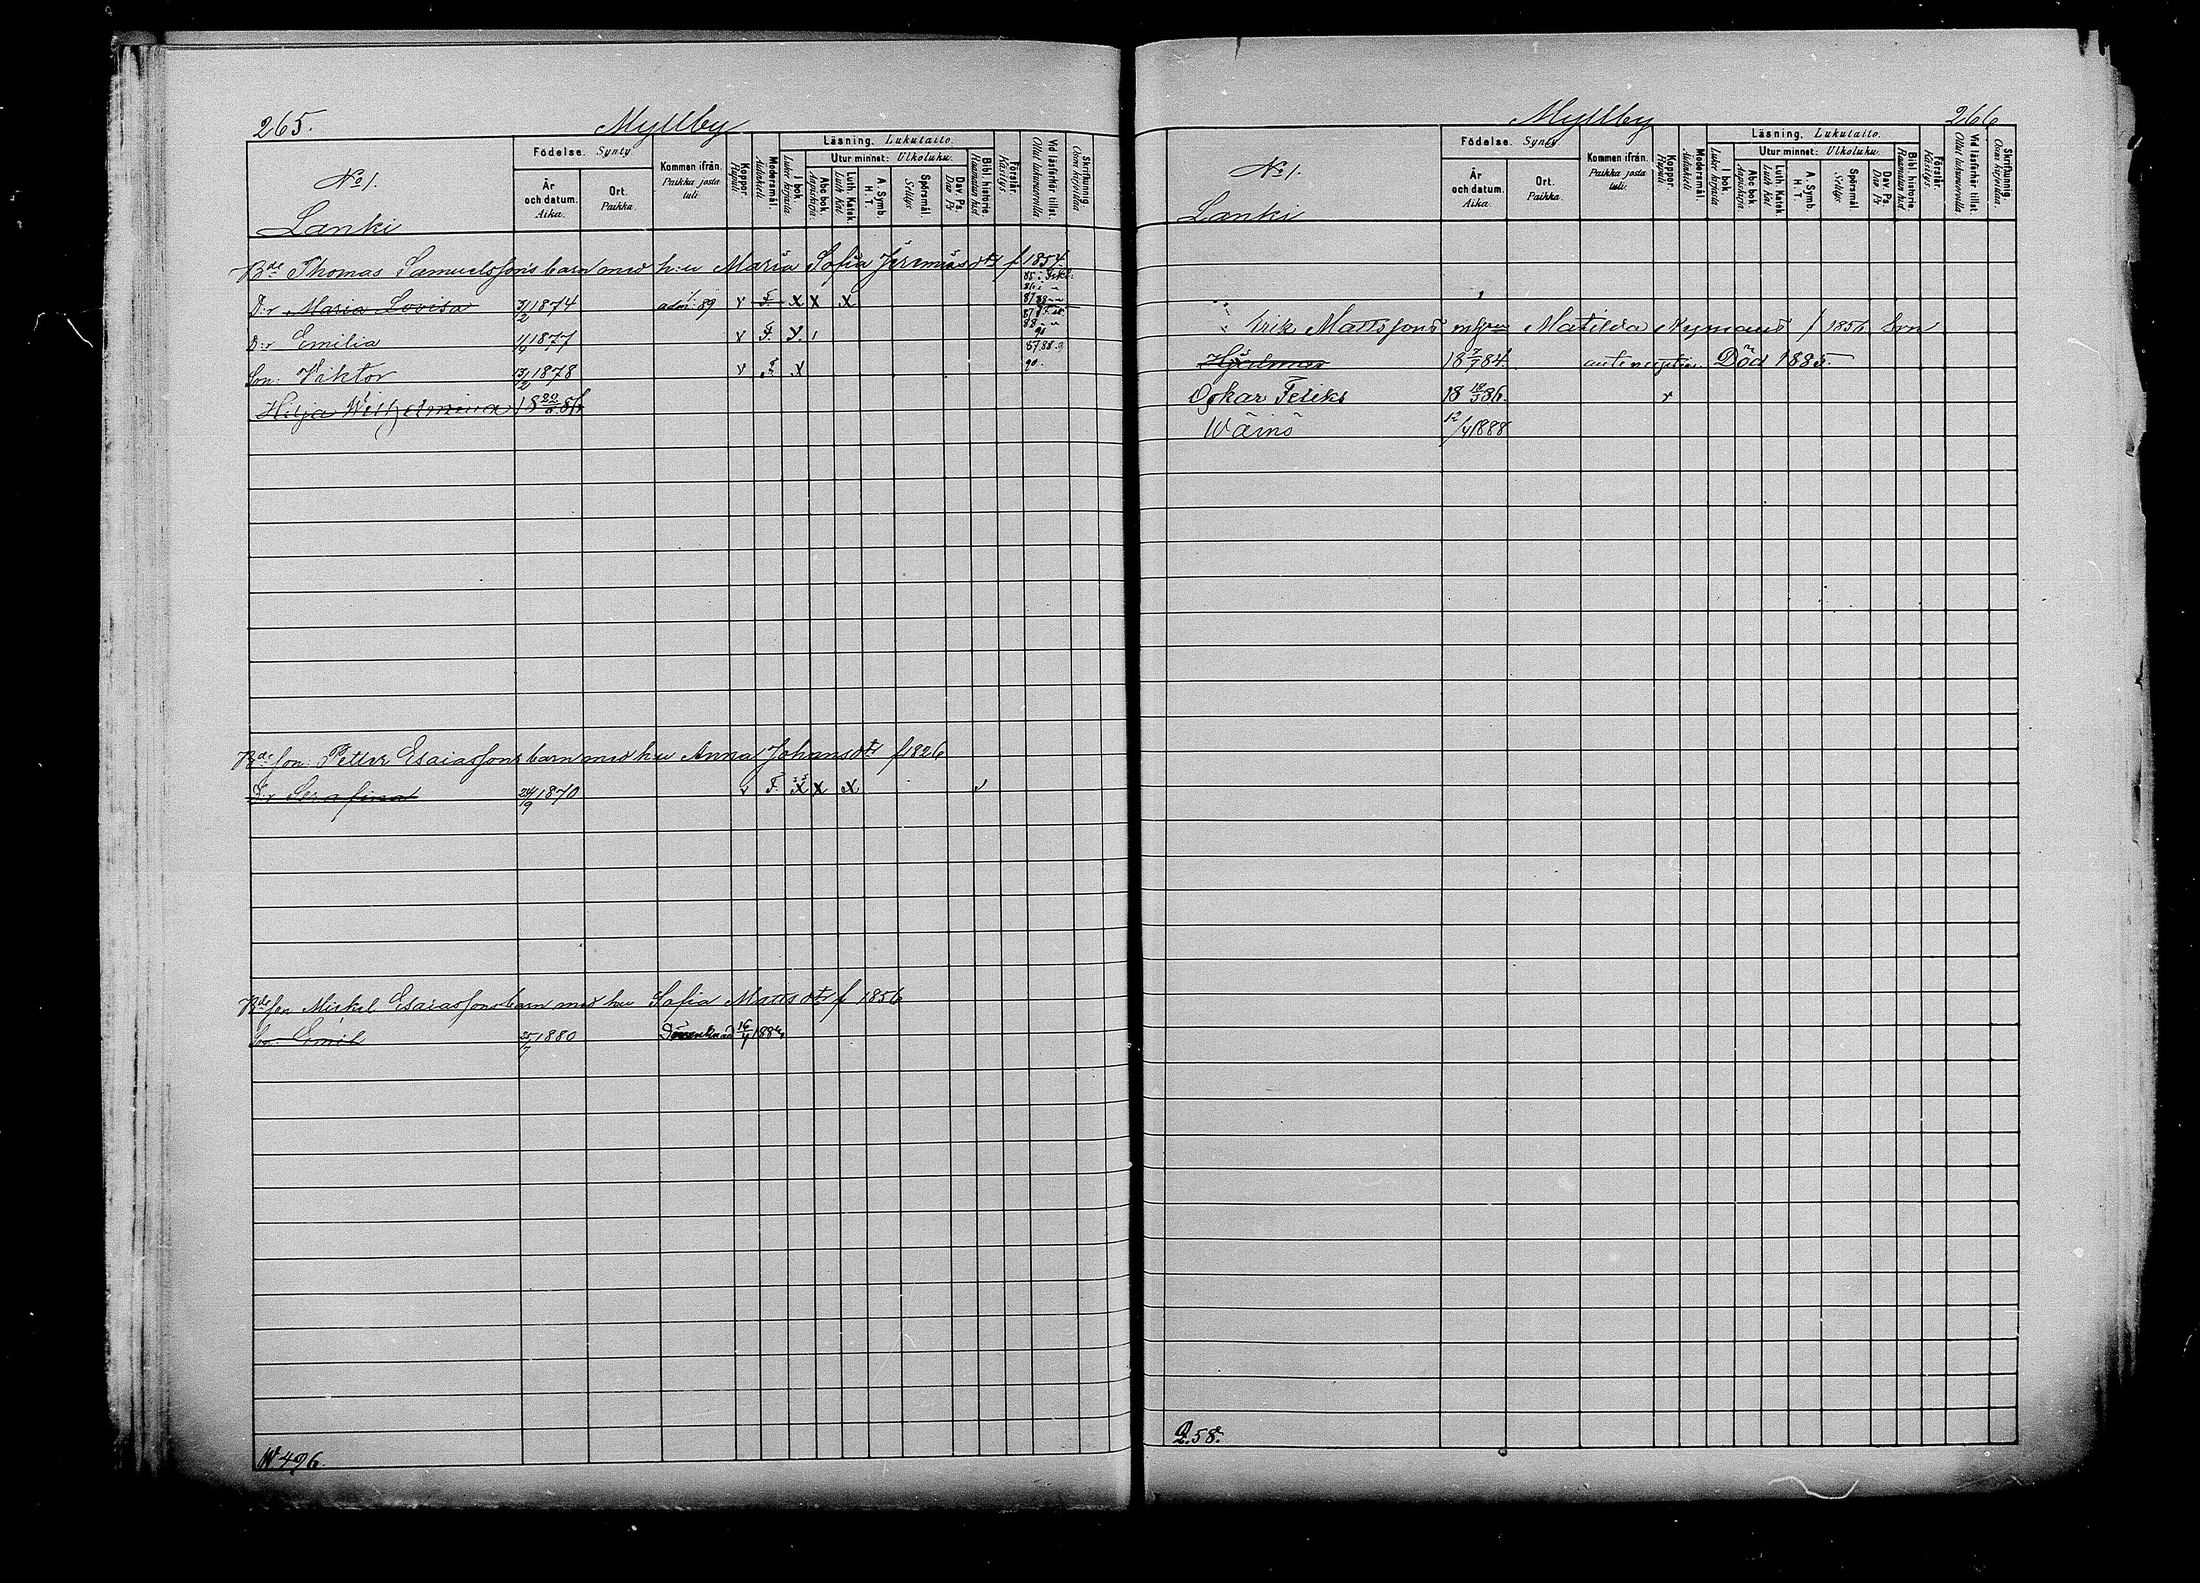 265. Myllby
No 1.
Lanki
Födelse. Synty.
År och datum. Aika.
Ort. Paikka.
Kommen ifrån. Paikka josta tuli
Koppor. Rupuli
Modersmål. Äidinkieli
Läsning. Lukutaito.
I bok. Luker kirjasta
Utur minnet: Ulkoluku.
Abc bok. Aapiskirja
Luth. Katek. Luth. Kat.
A. Symb. H. T.
Spörsmål. Selitys.
Dav. Ps. Dav. Ps
Bibl. historie. Raamatun hist.
Förstår. Käsitys.
Vid läsförhör tillst. Ollut lukukunnilla
Skrifkunnig. Osaa kirjoittaa
Bde Thomas Samuelssons barn med h:u Maria Sofia Jeremiasdtr f 1854.
D:r Maria Lovisa 3/2 1874 adm: 89 v F. X X X
D:r Emilia 1877 v F.
Son: Viktor 13/2 1878 v F. X 90.
Hilja Wilhelmina 18 86
Bde son: Petter Esaiassons barn med h:u Anna Johansdtr f 1826
D:r Serafina 24/9 1870 v F. X X X
Bde son Mickel Esaiassons barn med h:u Sofia Mattsdtr f 1856
Son Emil 25/7 1880 16/4
W 496.
Myllby 266
No 1.
Lanki
Födelse. Synty
År och datum. Aika.
Ort. Paikka.
Kommen ifrån. Paikka josta tuli.
Koppor. Rupuli
Modersmål. Äidinkieli
Läsning. Lukutaito.
I bok. Luker kirjasta
Utur minnet: Ulkoluku.
Abc bok Aapiskirja
Luth. Katek Luth. Kat.
A. Symb. H. T.
Spörsmål Selitys.
Dav. Ps. Dav. Ps
Bibl. historie. Raamatun hist.
Förstår. Käsitys.
Vid läsförhör tillst.
Skrifkunnig. Osaa kirjoittaa.
Erik Mattssons Matilda Nymans f 1856 brn
Hjalmar 18 7/7 84. Död 1885.
Oskar Feliks 18 86. v
Wäinö 12/4 1888
258.